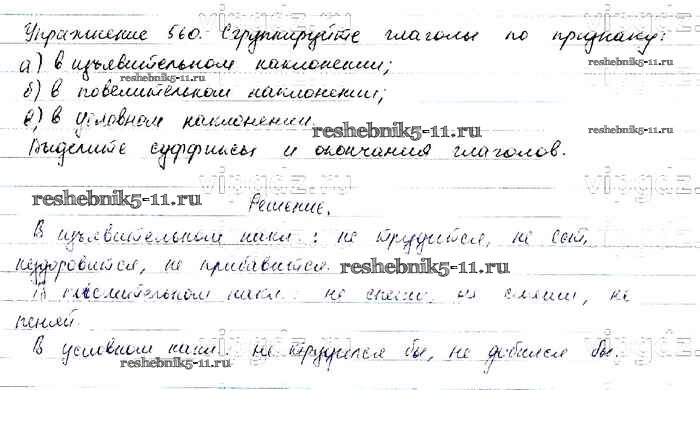 Упражнение 560. Сгруппируйте глаголы по признаку:
а) в изъявительном наклонении;
reshebnik5-11.ru
б) в повелительном наклонении;
в) в условном наклонении.
reshebnik5-11.ru
reshebnik5-11.ru
Выделите суффиксы и окончания глаголов.
reshebnik5-11.ru
vipgdz.ru
Решение.
В изъявительном накл.: не трудится, не ест,
нездоровится, не прибавится.
reshebnik5-11.ru
В повелительном накл.: не спеши, не смеши, не
пеняй.
В условном накл.: не трудился бы, не добился бы.
reshebnik5-11.ru